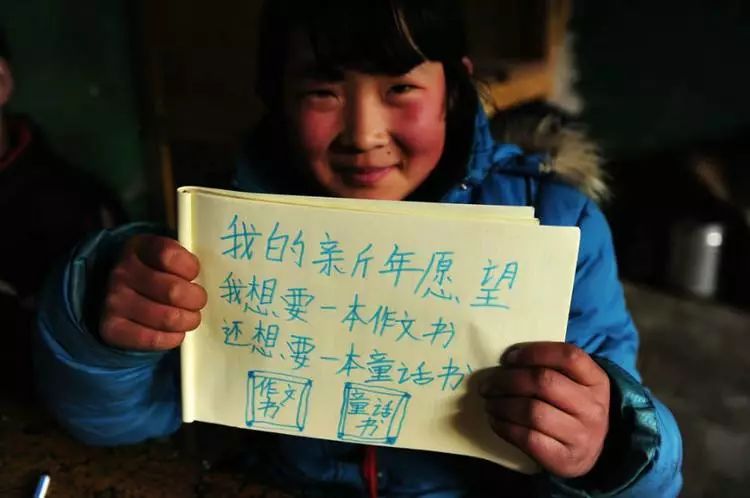 我的新年愿望
我想要一本作文书
还想要一本童话书
作文
书
童话
书